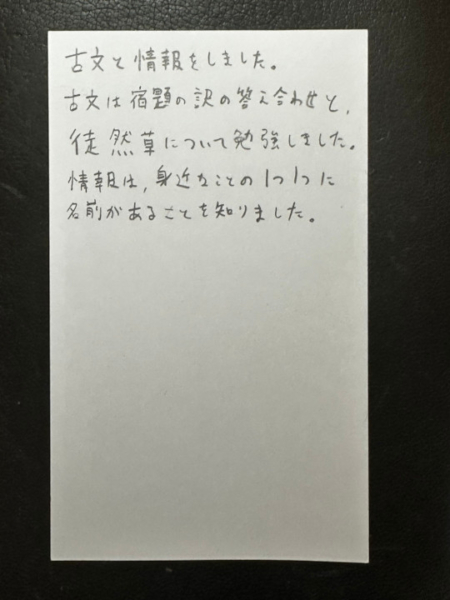 古文と情報をしました。
古文は宿題の訳の答え合わせと、
徒然草について勉強しました。
情報は、身近なことの1つ1つに
名前があることを知りました。